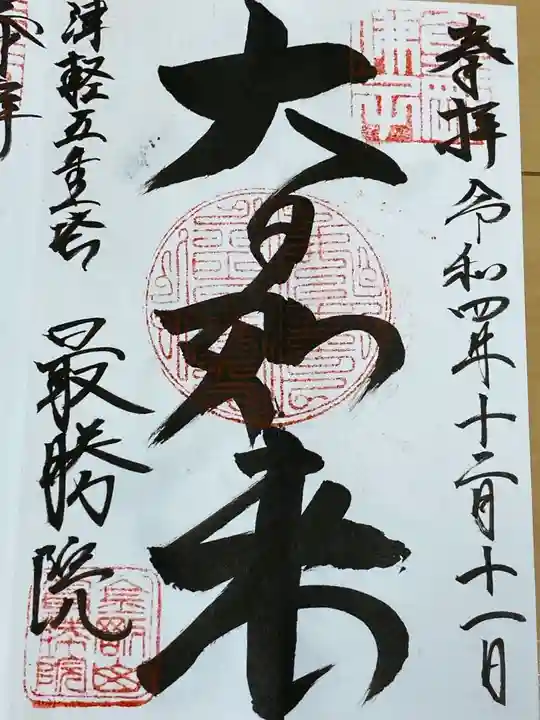 奉拝 令和四年十二月十一日
大日如来
津軽五重塔
最勝院
奉拝